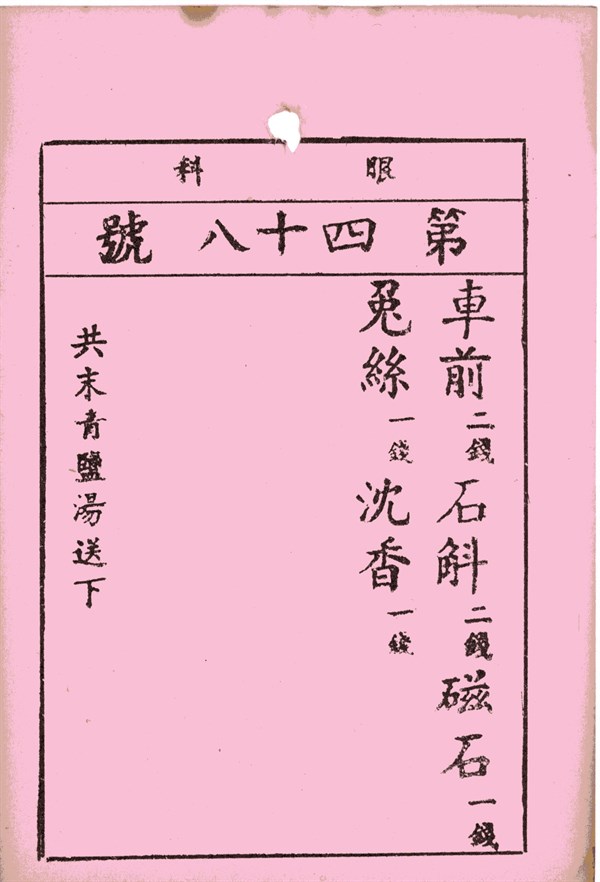 眼科
第四十八號
車前二錢石斛二錢磁石一錢
兎絲一錢沈香一錢
共末青鹽湯送下